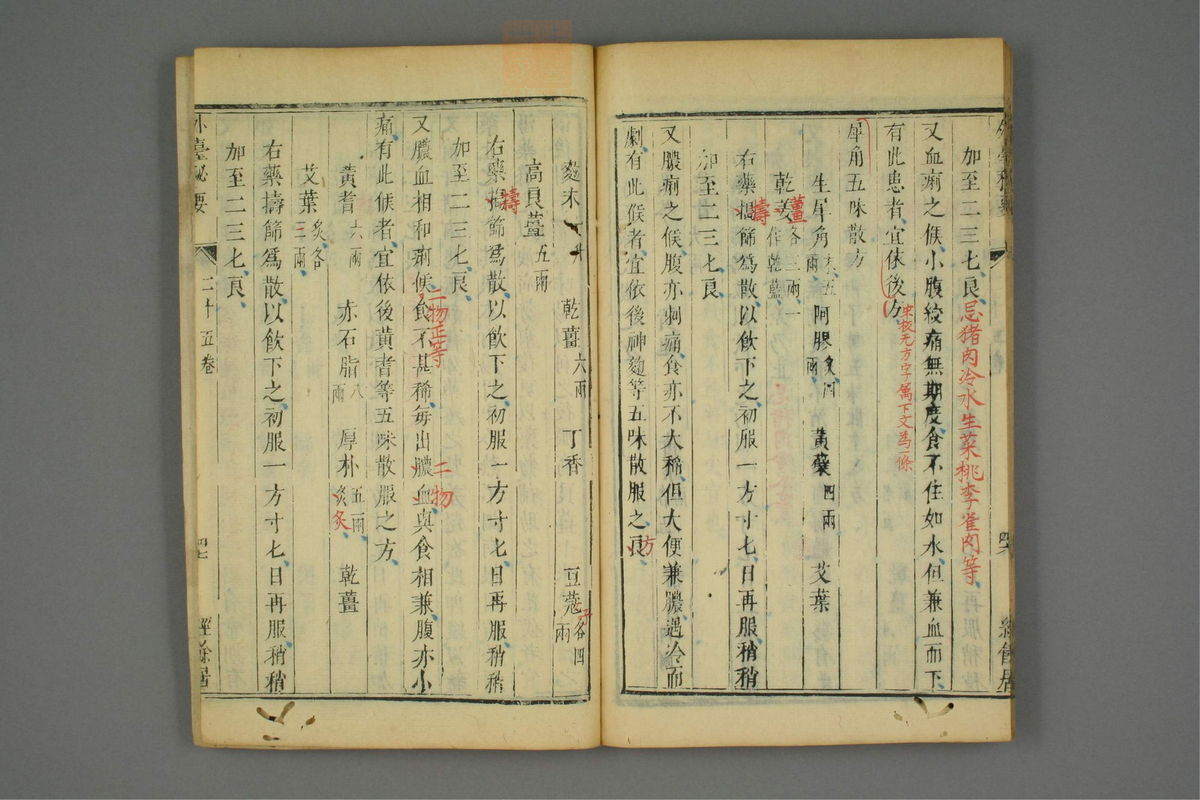 加至二三七良忌猪肉冷水生菜桃李雀肉等
又血痢之候小腹絞痛無期度食不住如水但兼血而下
有此患者宜依後方
宋板无方字属下文爲一條
犀角五味散方
生犀角六五兩 阿膠炙四兩 黃蘗四兩 艾葉
乾姜各三兩一作乾藍
薑
右藥搗篩爲散以飲下之初服一方寸七日再服稍稍
擣
加至二三七良
又膿痢之候腹亦刺痛食亦不大稀但大便兼膿遇冷而
劇有此候者宜依後神麴等五味散服之良
方
麴末 乾薑六兩 丁香 豆蔻各四兩
高良薑五兩
右藥搗篩爲散以飲下之初服一方寸七日再服稍稍
擣
加至二三七良
又膿血相和痢候食不甚稀每出膿血與食相兼腹亦小
二物正等
二物
痛有此候者宜依後黃耆等五味散服之方
黃耆六兩 赤石脂八兩 厚朴五兩炙 乾薑
炙
艾葉炙各三兩
右藥擣篩爲散以飲下之初服一方寸七日再服稍稍
加至二三七良
外臺秘要 二十五卷 經餘居